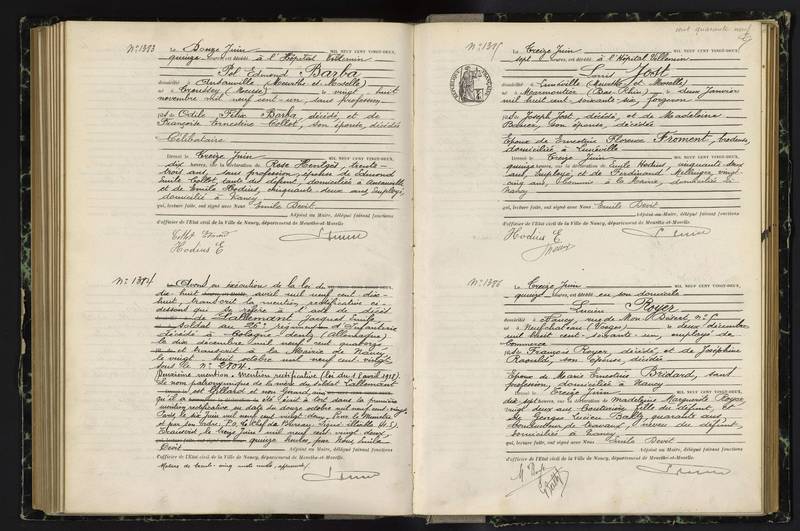 N° 1393
Le Douze Juin MIL NEUF CENT VINGT-DEUX,
quinze heures, est décédé à l'Hôpital Villemin
Pol Edmond Barba
domicilié à (Meurthe et Moselle)
né à Troussey (Meuse) le vingt huit
novembre mil neuf cent un, sans profession
fils de Odile Félix Barba, décédé et de
Françoise Ernestine Collot, son épouse, décédée
Célibataire
Devant le Treize Juin MIL NEUF CENT VINGT-DEUX,
dix heures, sur la déclaration de Rose Hentges, trente-
trois ans, sans profession, épouse de Edmond
Emile Collot, tante du défunt, domiciliée à
et de Emile Hodius, cinquante deux ans, employé,
domicilié à Nancy
qui, lecture faite, ont signé avec Nous Emile Devit Adjoint au Maire, délégué faisant fonctions
d'officier de l'Etat civil de la Ville de Nancy, département de Meurthe-et-Moselle.
Collot
Hodius E
N° 1394
Avons en exécution de la loi du
dix huit avril mil neuf cent dix-
huit, transcrit la mention rectificative ci-
dessous qui se réfère à l'acte de décès
de Lallemant Jacques Emile
soldat au 26e régiment d'Infanterie
décédé à Cologne (Allemagne)
le dix décembre mil neuf cent quatorze
et transcrit à la Mairie de Nancy
le vingt huit octobre mil neuf cent vingt
sous le N° 2704.
Deuxième mention. Mention rectificative (loi du 18 avril 1918).
Le nom patronymique de la mère du soldat Lallemant
est Gillard et non Girard,
qu'il a été écrit à tort dans la première
mention rectificative en date du douze octobre mil neuf cent vingt.
Paris, le dix Juin mil neuf cent vingt deux, Pour le Ministre
et par son Ordre, P.O. Le Chef de Bureau, Signé illisible (N. S.)
Transcrit le treize Juin mil neuf cent vingt deux,
quinze heures, par Nous Emile
Devit Adjoint au Maire, délégué faisant fonctions
d'officier de l'Etat civil de la Ville de Nancy, département de Meurthe-et-Moselle.
cent quarante neuf
N° 1395
Le Treize Juin MIL NEUF CENT VINGT-DEUX,
sept heures, est décédé à l'Hôpital Villemin
Louis Jost
domicilié à Lunéville (Meurthe et Moselle)
né à Marmoutier (Bas-Rhin) le deux Janvier
mil huit cent soixante six, forgeron
fils de Joseph Jost, décédé, et de Madeleine
son épouse, décédée
Epoux de Ernestine Florence Froment, brodeuse,
domiciliée à Lunéville
Devant le Treize Juin MIL NEUF CENT VINGT-DEUX,
quinze heures, sur la déclaration de Emile Hodius, cinquante deux
ans, employé et de Ferdinand vingt
cinq ans, commis à la Mairie, domiciliés à
Nancy
qui, lecture faite, ont signé avec Nous Emile Devit Adjoint au Maire, délégué faisant fonctions
d'officier de l'Etat civil de la Ville de Nancy, département de Meurthe-et-Moselle.
Hodius E
N° 1396
Le Treize Juin MIL NEUF CENT VINGT-DEUX,
quinze heures, est décédé en son domicile
Lucien Royer
domicilié à Nancy, rue de Mon Désert, n°
né à Neufchateau (Vosges) le deux décembre
mil huit cent soixante un, employé de
Commerce
fils de François Royer, décédé et de Joséphine
son épouse, décédée
Epoux de Marie Ernestine Bridard, sans
profession, domiciliée à Nancy
Devant le Treize Juin MIL NEUF CENT VINGT-DEUX,
dix sept heures, sur la déclaration de Madeleine Marguerite Royer,
vingt deux ans, Couturière, fille du défunt, et
de Georges Lucien quarante ans,
Conducteur de travaux, neveu du défunt,
domiciliés à Nancy
qui, lecture faite, ont signé avec Nous Emile Devit Adjoint au Maire, délégué faisant fonctions
d'officier de l'Etat civil de la Ville de Nancy, département de Meurthe-et-Moselle.